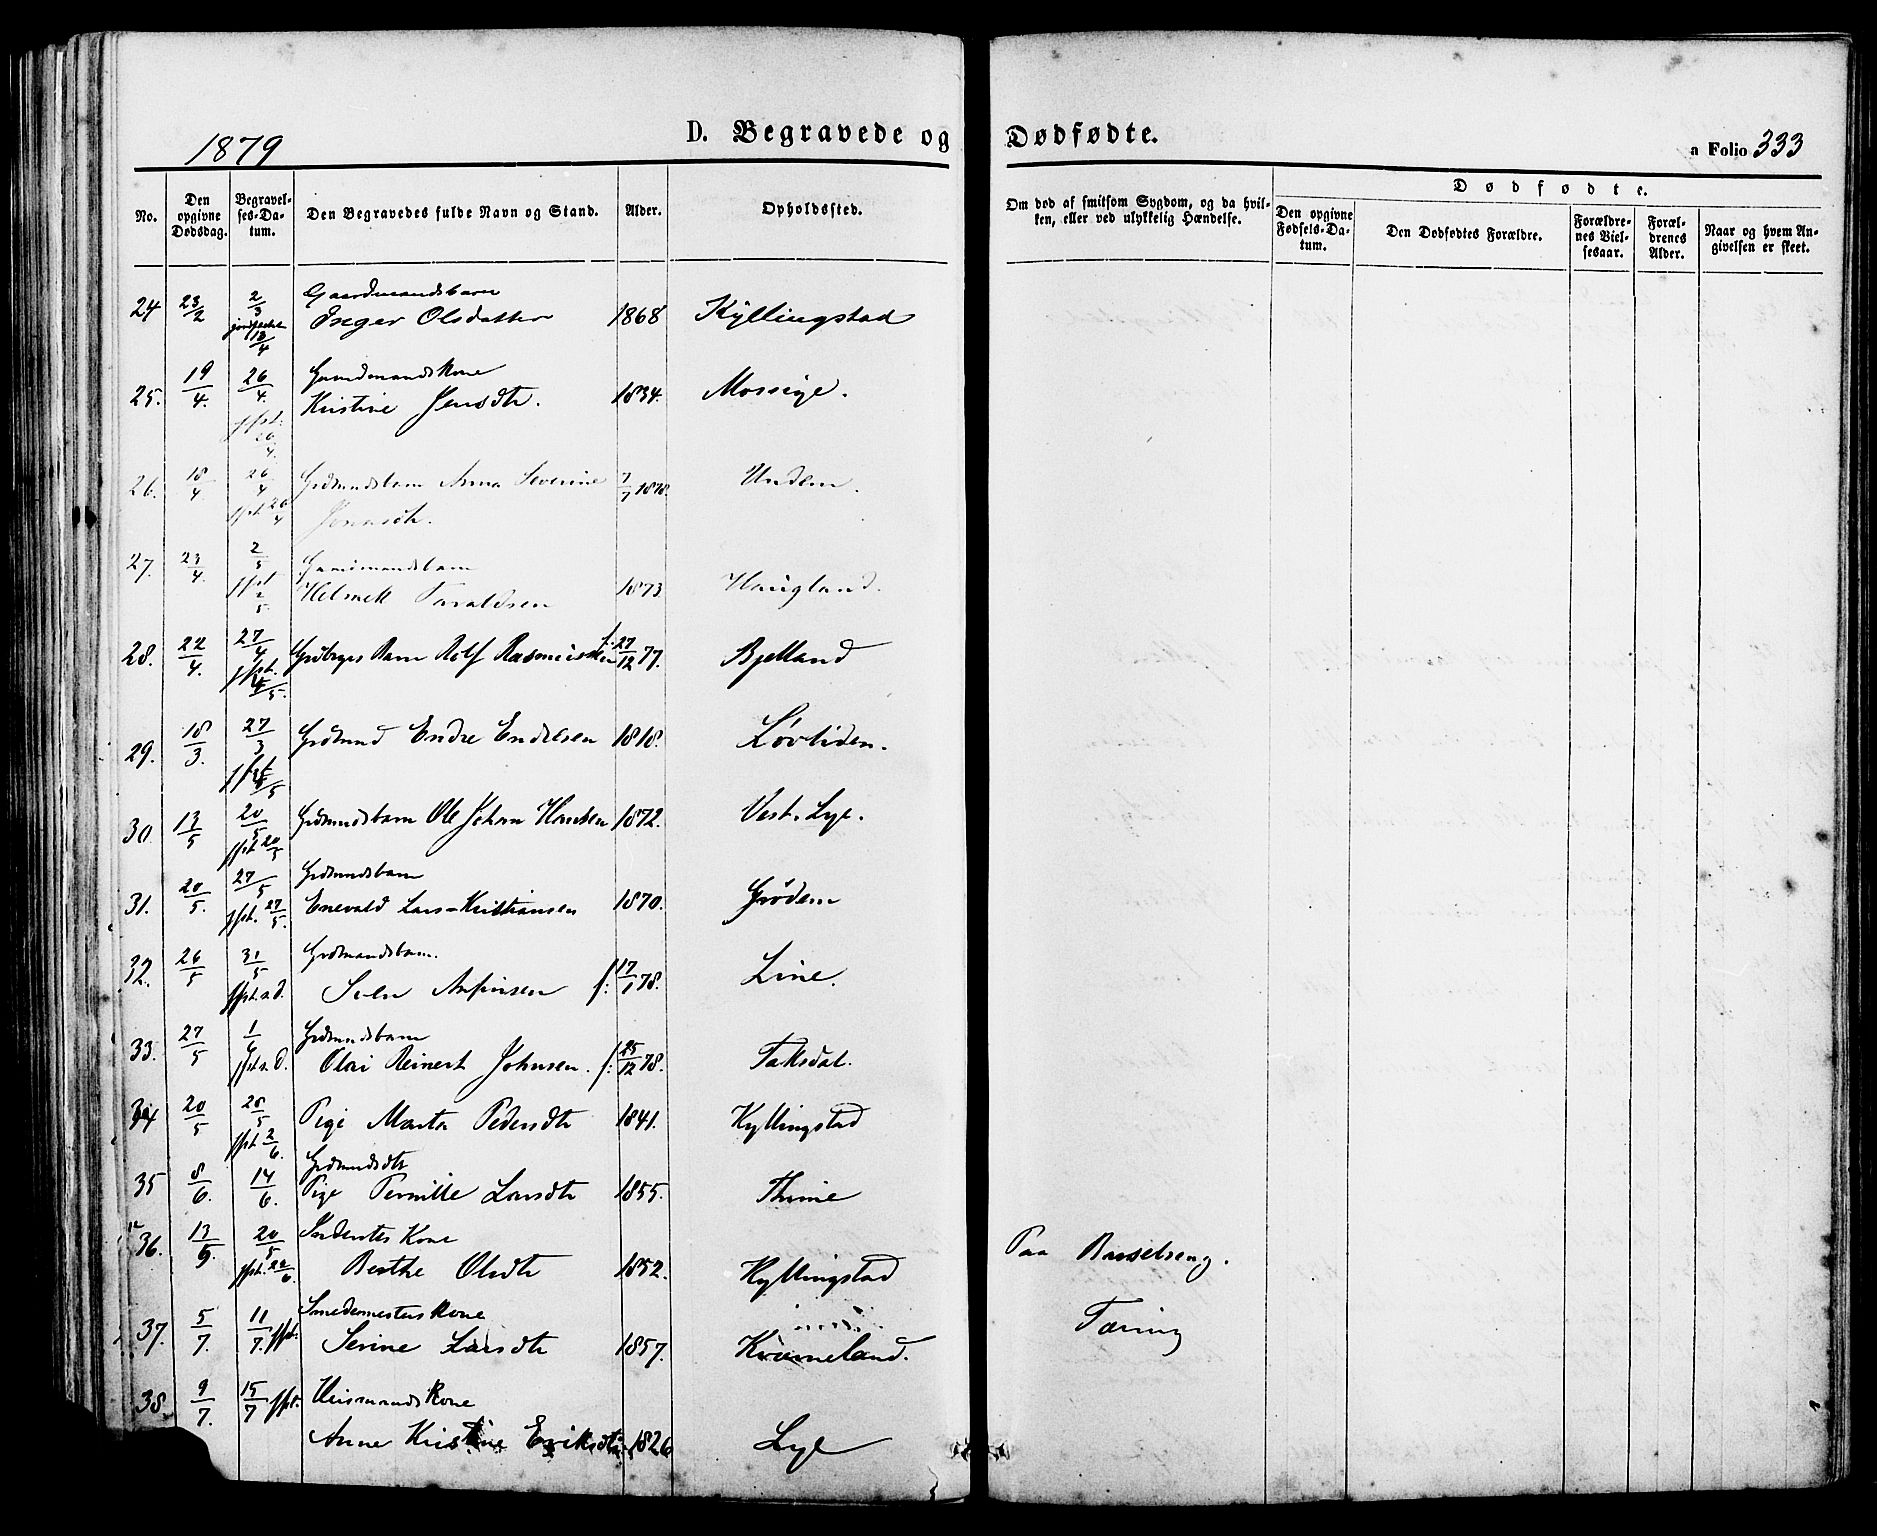 1879
D. Begravede og Dødfødte.
a Folio 333
No.
Den opgivne Dødsdag.
Begravel-
ses-Da-
tum.
Den Begravedes fulde Navn og Stand.
Alder.
Opholdssted.
Om død af smitsom Sygdom, og da hvil-
ken, eller ved ulykkelig Hændelse.
Dødfødte.
Den opgivne
Fødsels-Da-
tum.
Den Dødfødtes Forældre.
Forældre-
nes Viel-
sesaar.
Foræl-
drenes
Alder.
Naar og hvem An-
givelsen er skeet.
Gaardmandsbarn
24 23/2 2/3 Inger Olsdatter 1868 Kyllingstad
Gaardmandskone
25. 19/4. 26/4. Kristine Jensdtr. 1834. Mossige.
26. 18/4 26/4 Grdmndsbarn Anna Severine 7/7 1878. Undem.
jfst. 26/4 Jonasdtr.
Gaardmandsbarn
27. 23/4. 2/5 jfst 2/5. Helmek Taraldsen 1873 Haugland.
28. 22/4. 27/4 Grdbrgrs Barn Rolf Rasmussen f: 27/12 77. Bjelland
29. 18/3. 27/3 Grdmnd Endre Endresen 1818. Løvliden.
30. 13/5 20/5 jfst 20/5 Grdmndsbarn Ole Johan Hansen 1872. Vest. Lye.
Grdmndsbarn
31. 20/5. 27/5 jfst. 27/5. Enevald Lars-Kristiansen 1870. Grødem
Grdmandsbarn.
32. 26/5 31/5 jfst. s. D. Sven Anfinsen f: 17/1 78. Line.
Grdmndsbarn
33. 27/5 1/6 jfst s. D. Olai Reinert Johnsen. f: 25/12 78. Taksdal.
34 20/5 28/5 jfst. 2/6. Pige Marta Pedersdtr 1841. Kyllingstad
Grdmndsdtr
35 8/6. 14/6. Pige Pernille Larsdtr 1855. Thime
Kone
36. 13/5. 20/5 jfst. 22/6. Berthe Olsdtr 1852. Kyllingstad Paa Barselseng.
Smedemesters Kone
37. 5/7. 11/7. jfst. Serine Larsdtr 1857. Kverneland. Tæring
Huismands Kone
38 9/7. 15/7 jfst.
Anne Kristine Eriksdtr. 1826 Lye